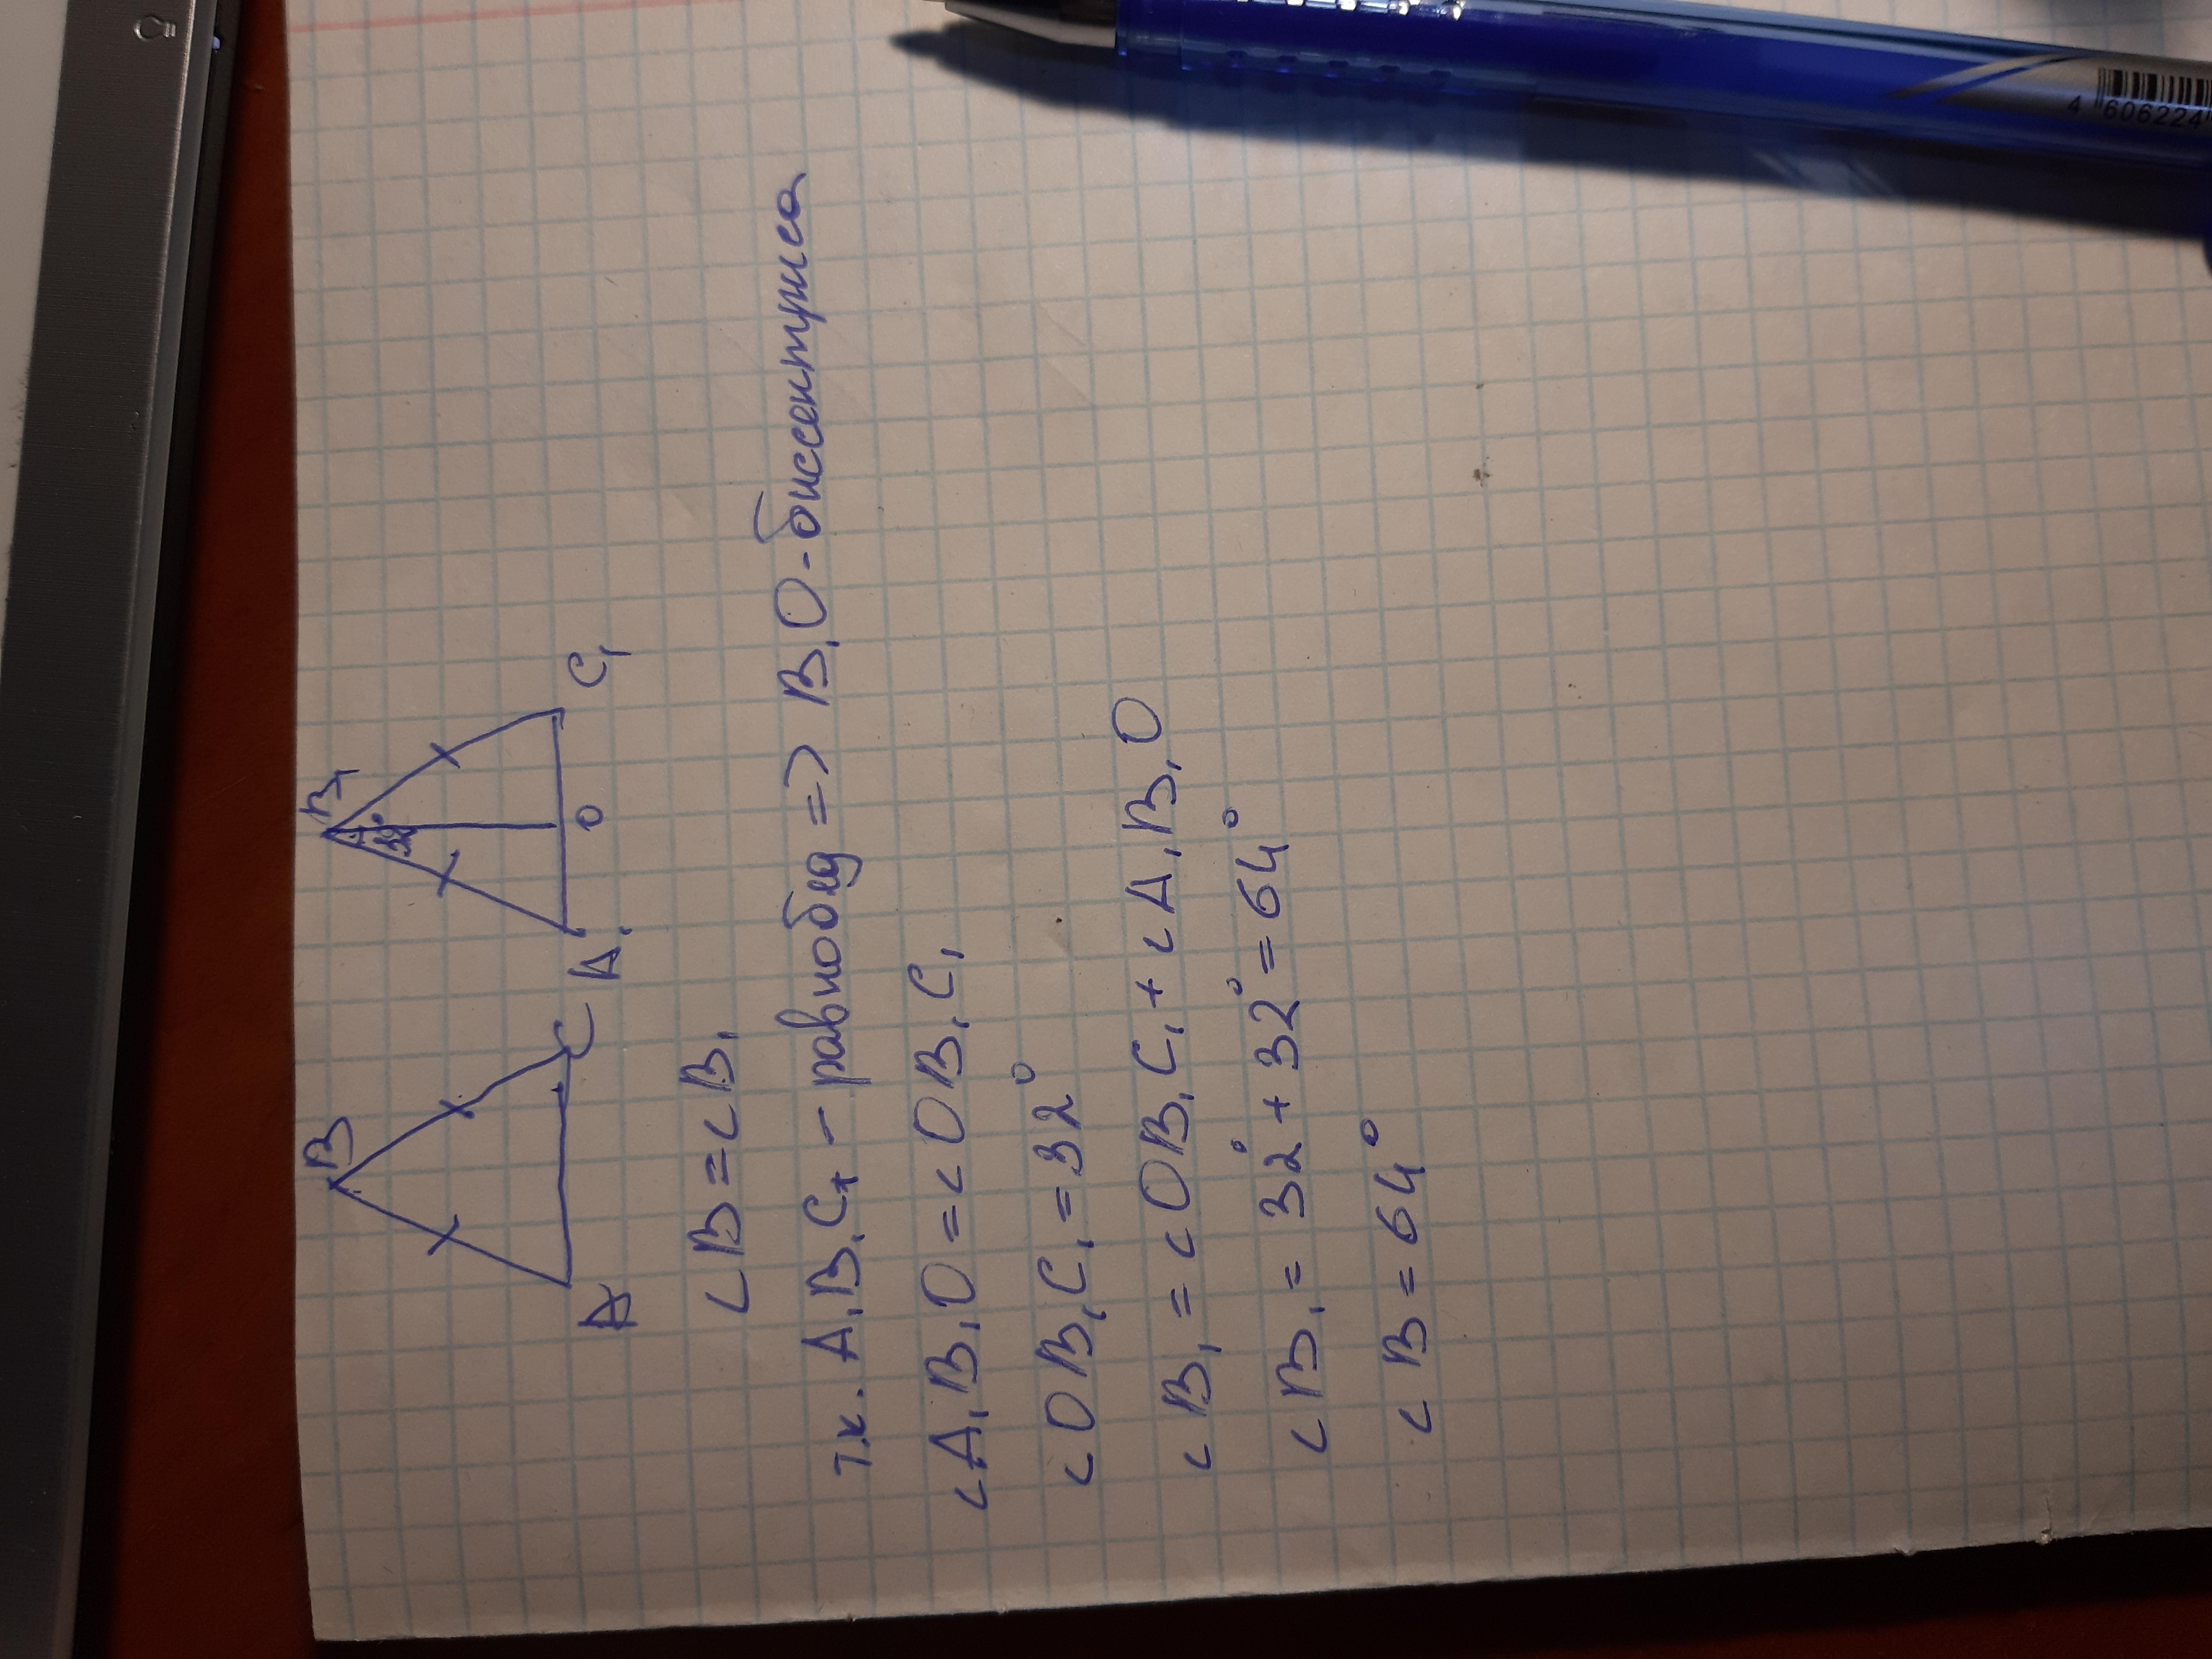 B B₁
32°
A C A₁ O C₁
∠B=∠B₁
т.к. A₁B₁C₁ - равнобед => B₁O-биссектриса
∠A₁B₁O=∠OB₁C₁
∠OB₁C₁=32°
∠B₁=∠OB₁C₁+∠A₁B₁O
∠B₁=32°+32°=64°
∠B=64°
4 606224